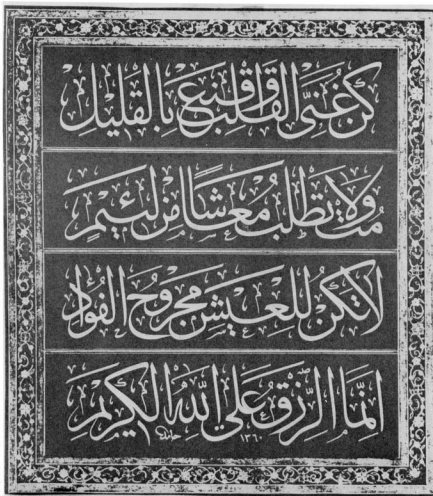 كُنْ غَنِيَّ القَلْبِ وَاقْنَعْ بِالقَلِيلِ
مُتْ وَلَا تَطْلُبْ مَعَاشًا مِنْ لَئِيمٍ
لَا تَكُنْ لِلْعَيْشِ مَجْرُوحَ الفُؤَادِ
اِنَّمَا الرِّزْقُ عَلَى اللهِ الكَرِيمِ
حامد ١٣٦٠